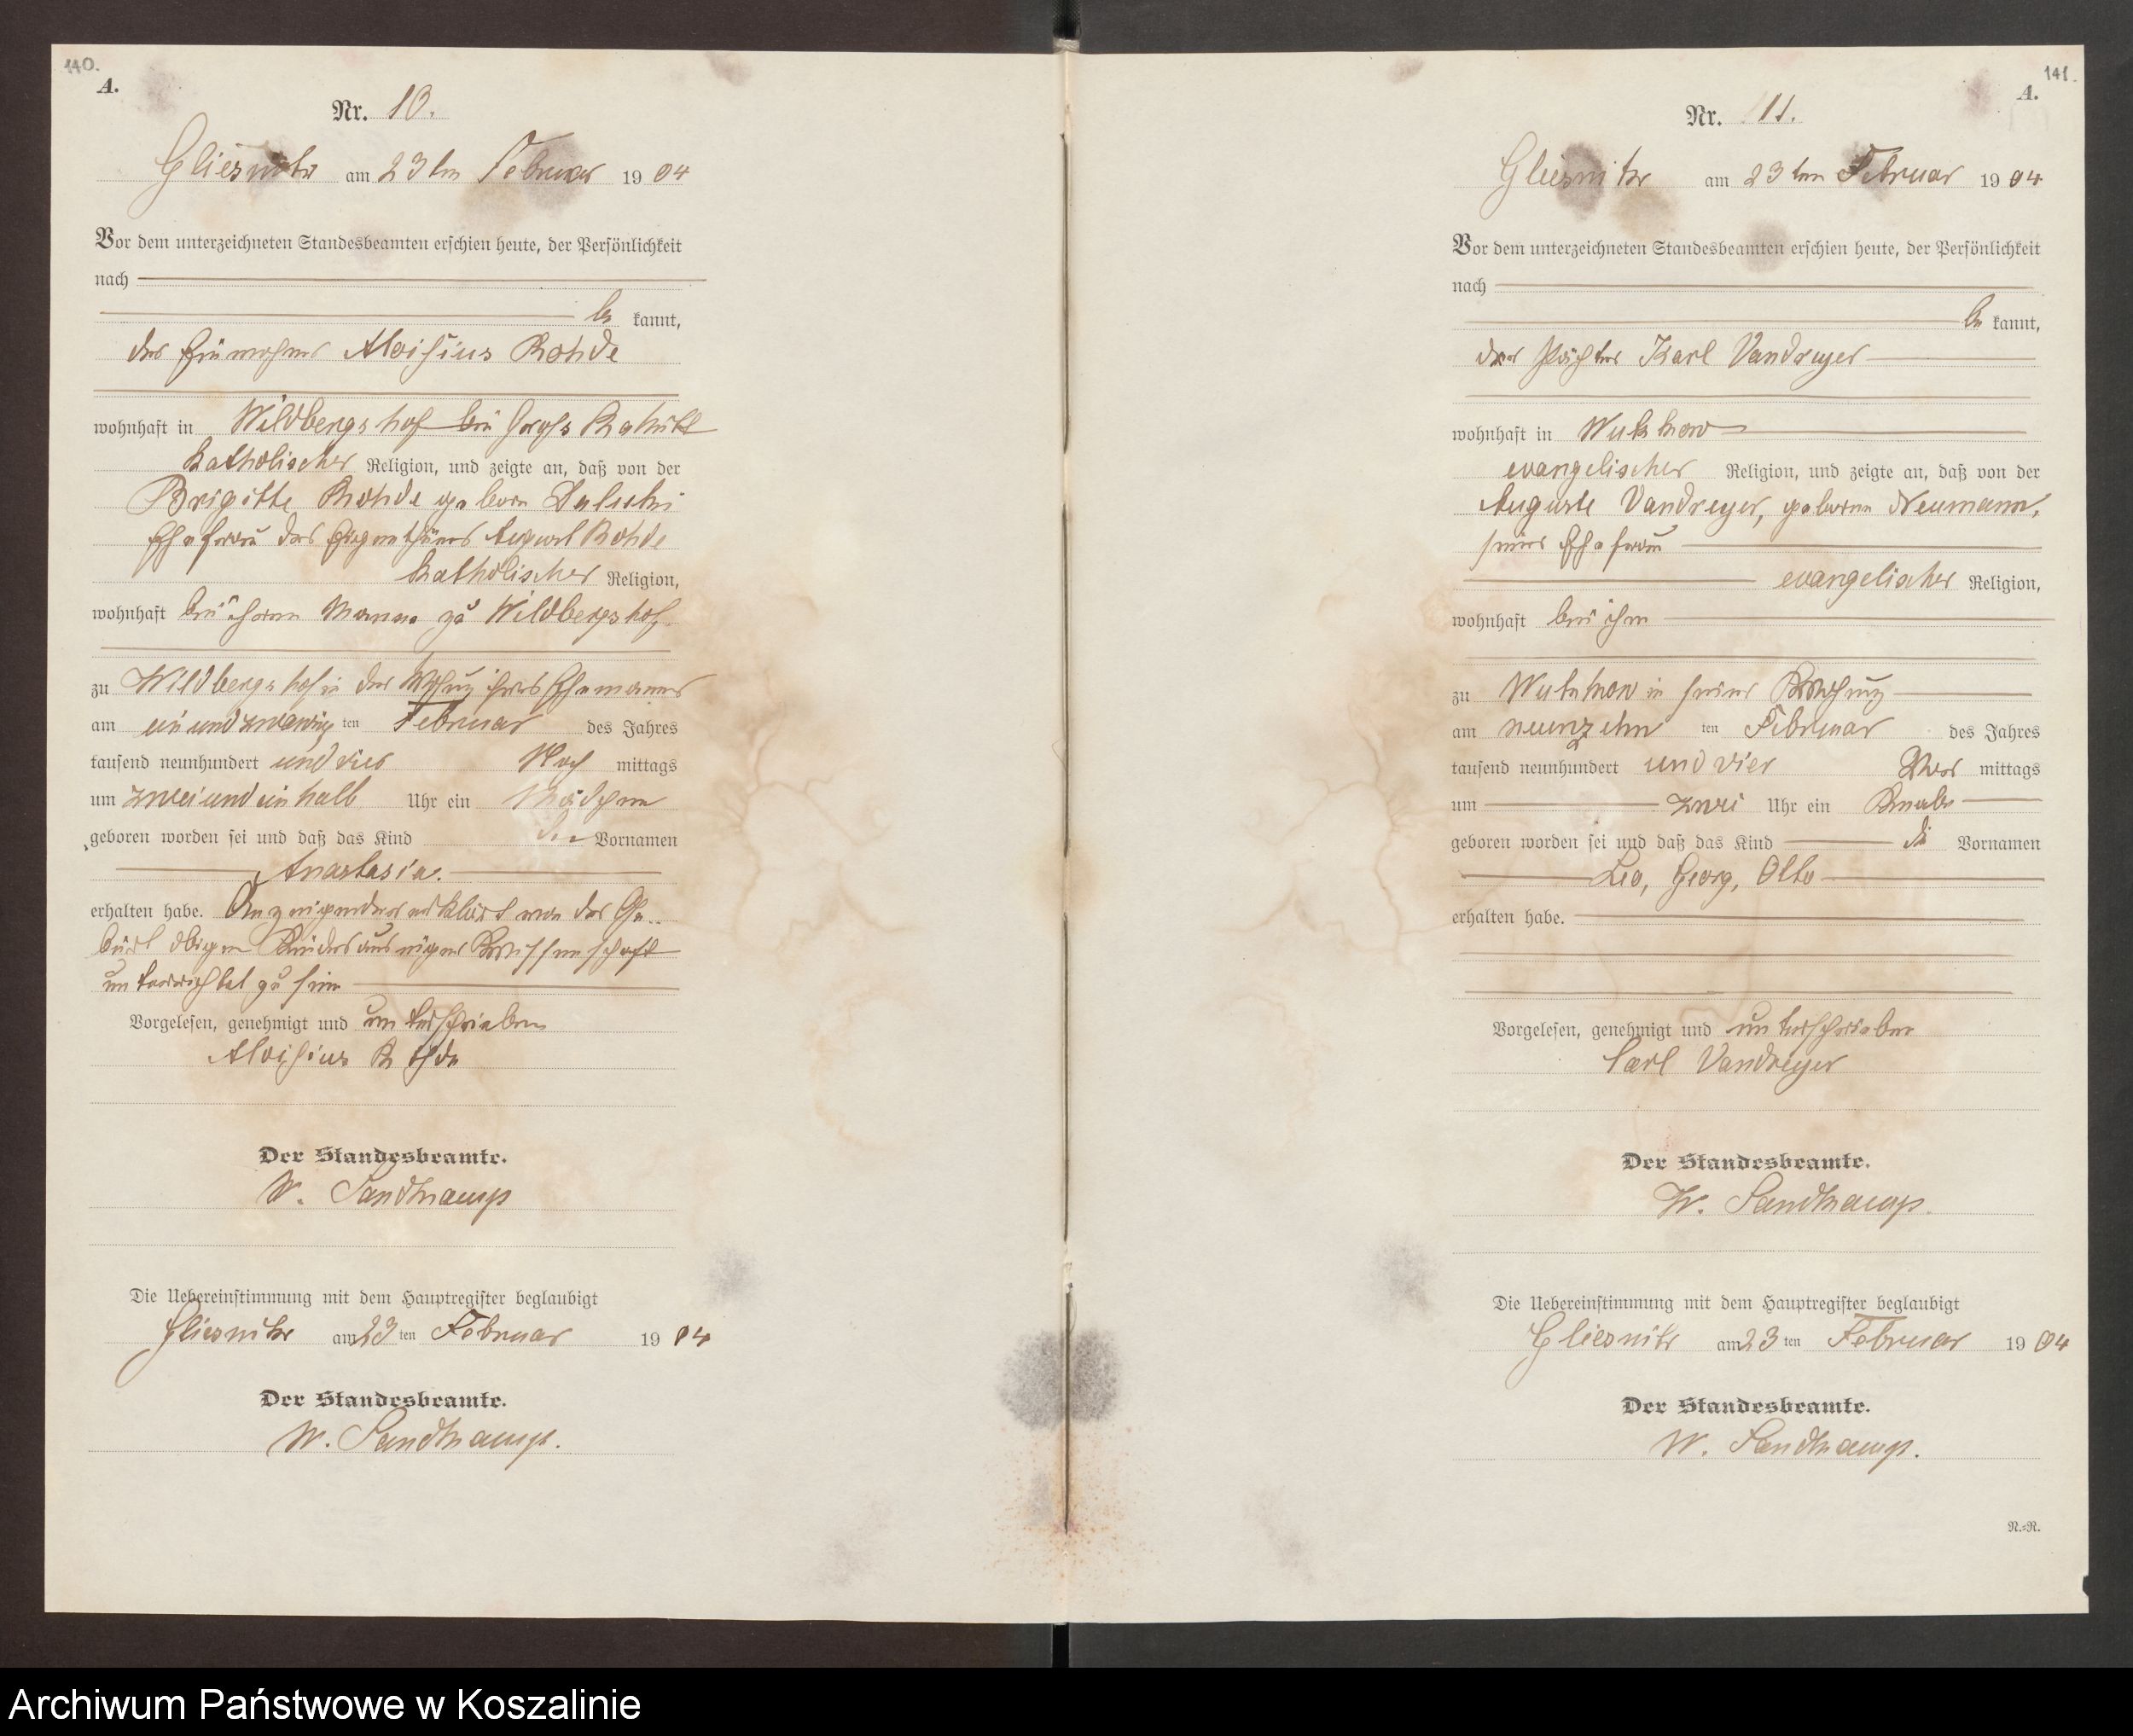 140.
A.
Nr. 10.
Gliesnitz am 23ten Februar 1904
Vor dem unterzeichneten Standesbeamten erschien heute, der Persönlichkeit
nach
be kannt,
der Einwohner Aloisius Rohde
wohnhaft in Wildbergshof bei Gross
katholischer Religion, und zeigte an, daß von der
Brigitte Rohde geboren
Ehefrau des Eigenthümers August Rohde
katholischer Religion,
wohnhaft bei ihrem Manne zu Wildbergshof
zu Wildbergshof in der Wohnung ihres Ehemannes
am ein und zwanzig ten Februar des Jahres
tausend neunhundert und vier Nach mittags
um zwei und ein halb Uhr ein Mädchen
geboren worden sei und daß das Kind den Vornamen
Anastasia.
erhalten habe. Anzeigender erklärt von der Ge-
burt obigen Kindes aus eigener Wissenschaft
unterrichtet zu sein
Vorgelesen, genehmigt und unterschrieben
Aloisius Rohde
Der Standesbeamte.
W. Sandkamp
Die Uebereinstimmung mit dem Hauptregister beglaubigt
Gliesnitz am 23 ten Februar 1904
Der Standesbeamte.
W. Sandkamp.
141.
A.
Nr. 11.
Gliesnitz am 23ten Februar 1904
Vor dem unterzeichneten Standesbeamten erschien heute, der Persönlichkeit
nach
be kannt,
der Pächter Karl Vandreyer
wohnhaft in Wusskow
evangelischer Religion, und zeigte an, daß von der
Auguste Vandreyer, geborene Neumann,
seiner Ehefrau
evangelischer Religion,
wohnhaft bei ihm
zu in seiner Wohnung
am neunzehn ten Februar des Jahres
tausend neunhundert und vier Vor mittags
um zwei Uhr ein Knabe
geboren worden sei und daß das Kind die Vornamen
Leo, Georg, Otto
erhalten habe.
Vorgelesen, genehmigt und unterschrieben
Carl Vandreyer
Der Standesbeamte.
W. Sandkamp.
Die Uebereinstimmung mit dem Hauptregister beglaubigt
Gliesnitz am 23 ten Februar 1904
Der Standesbeamte.
W. Sandkamp.
N.=R.
Archiwum Państwowe w Koszalinie